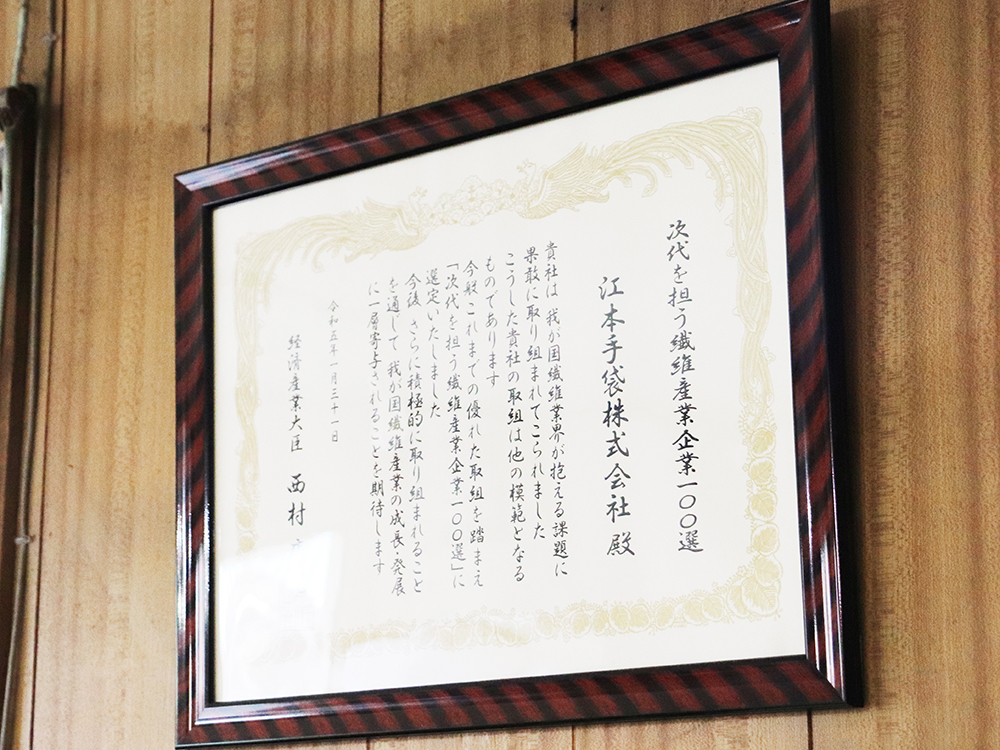 次代を担う繊維産業企業一〇〇選
江本手袋株式会社 殿
貴社は 我が国繊維業界が抱える課題に
果敢に取り組まれてこられました
こうした貴社の取組は他の模範となる
ものであります
今般 これまでの優れた取組を踏まえ
「次代を担う繊維産業企業一〇〇選」に
選定いたしました
今後 さらに積極的に取り組まれること
を通して 我が国繊維産業の成長・発展
に一層寄与されることを期待します
令和五年一月三十一日
経済産業大臣 西村